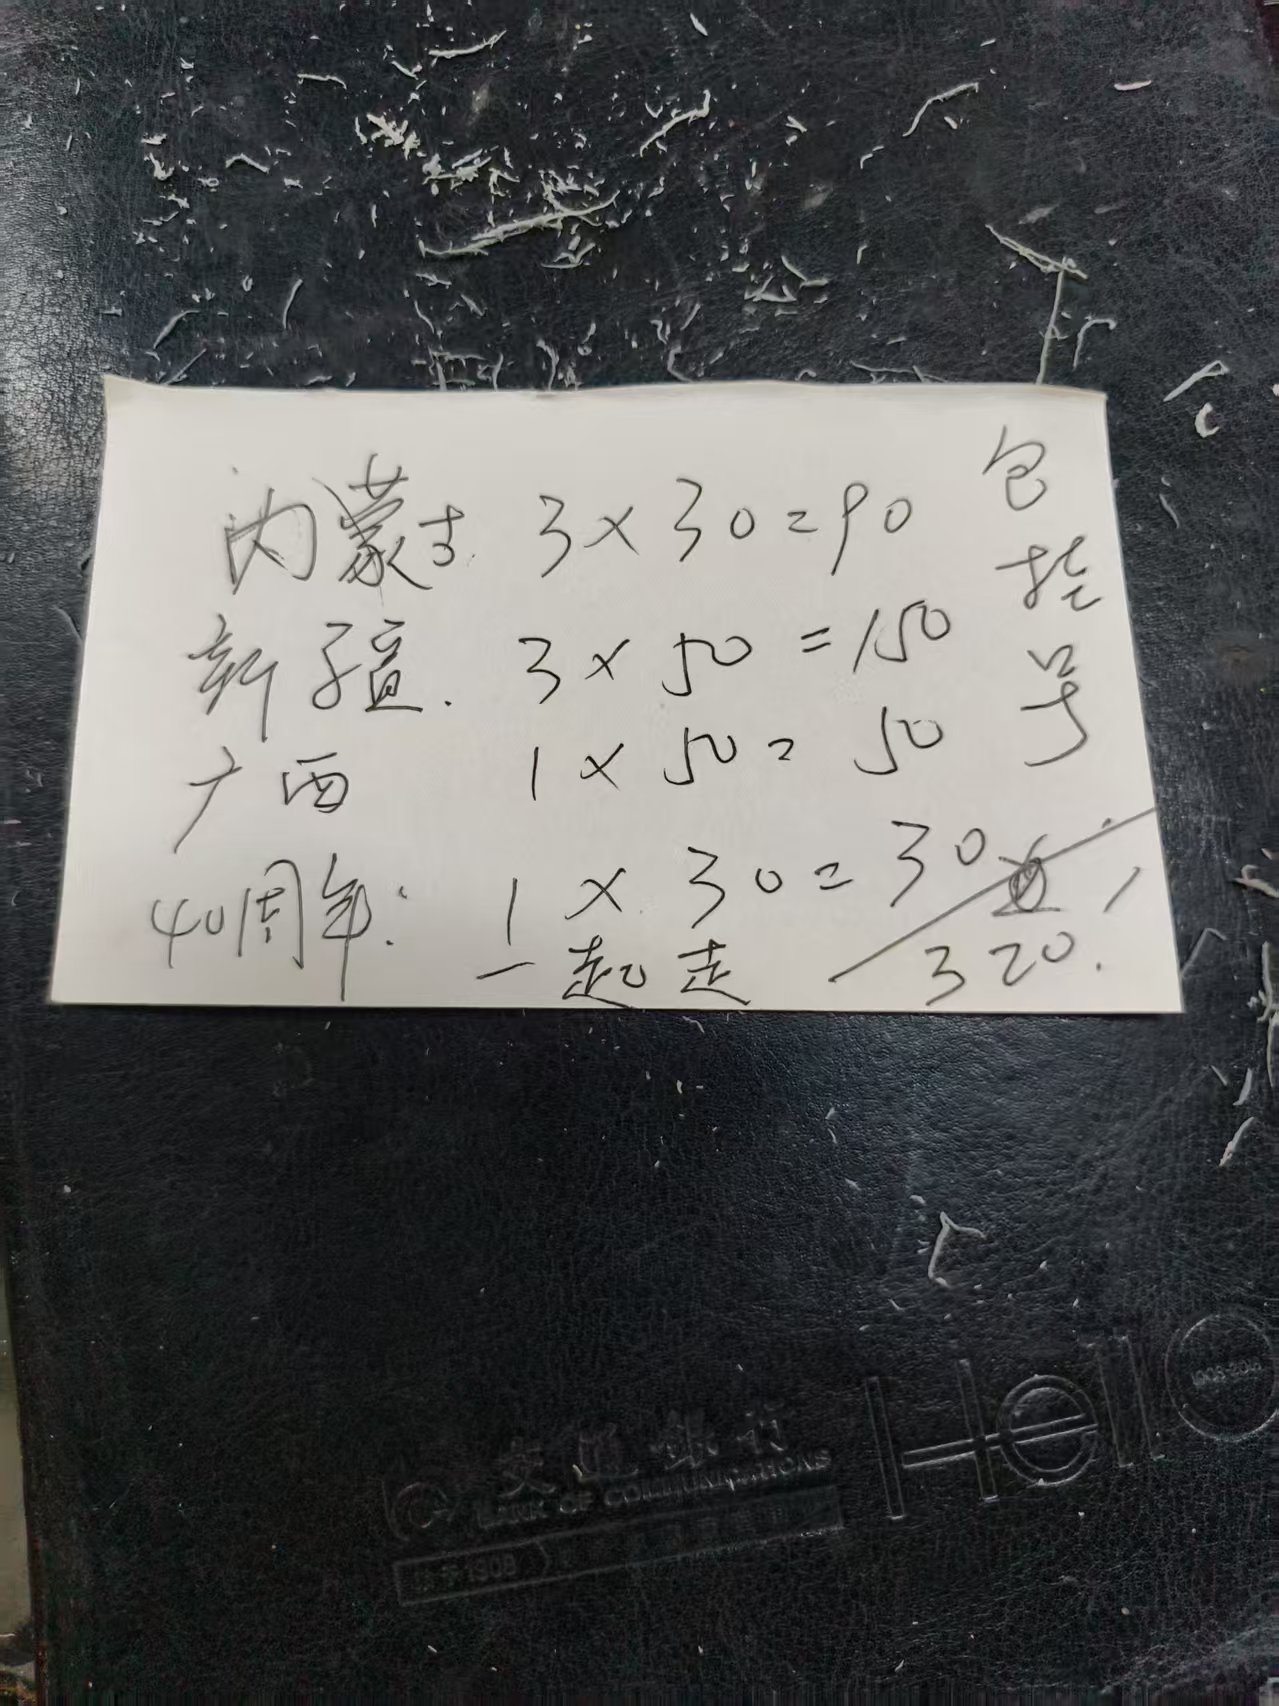 内蒙古 3×30=90
新疆. 3×50=150
广西 1×50=50
40周年: 1×30=30
一起走 320.
包挂号
交通银行
BANK OF COMMUNICATIONS
1908
Hello